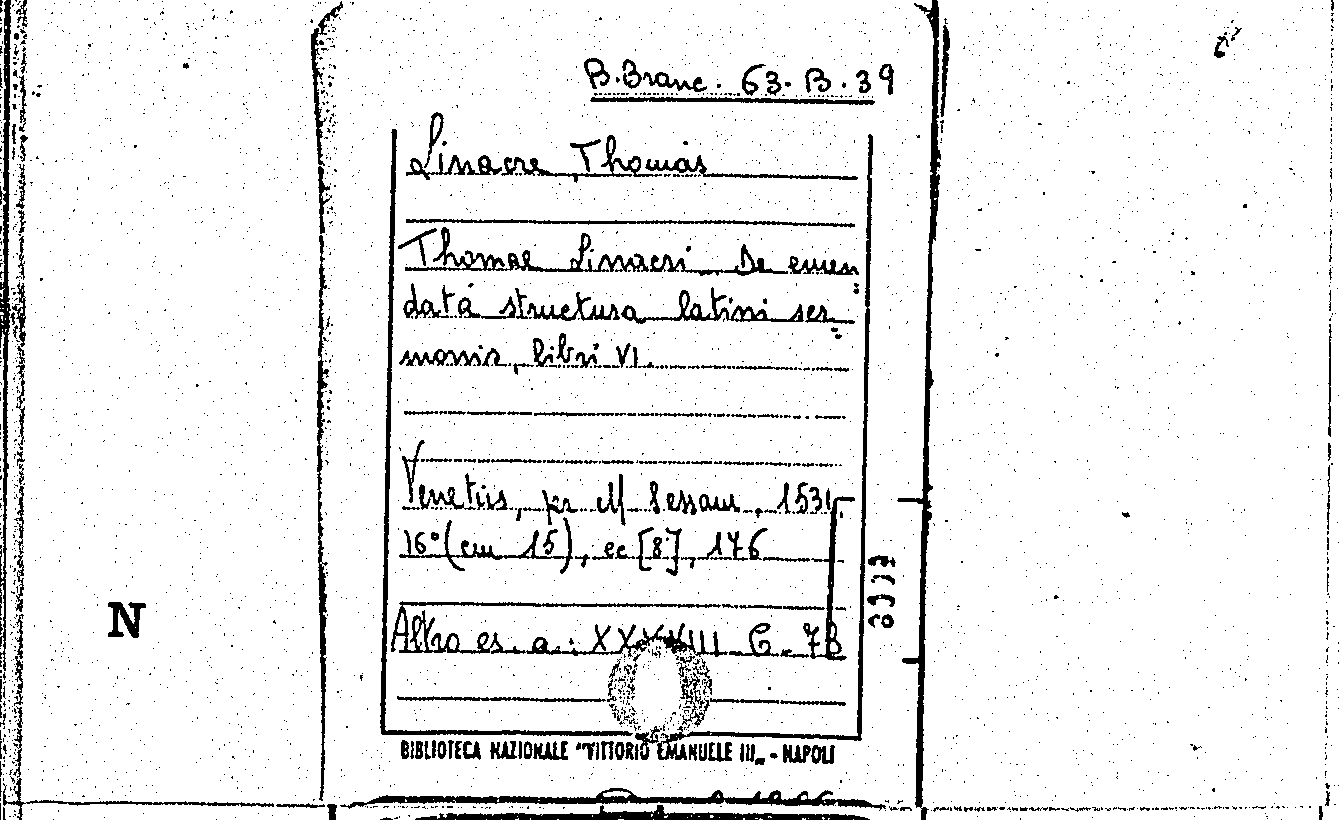 B. Branc. 63. B. 39
Linacre, Thomas
Thomae Linacri De emen
data structura latini ser
monis, libri VI.
Venetiis, per M Sessam, 1531.
16° (cm 15), cc [8], 176
Altro es. a: XXXVIII G. 73
N
BIBLIOTECA NAZIONALE "VITTORIO EMANUELE III„ - NAPOLI